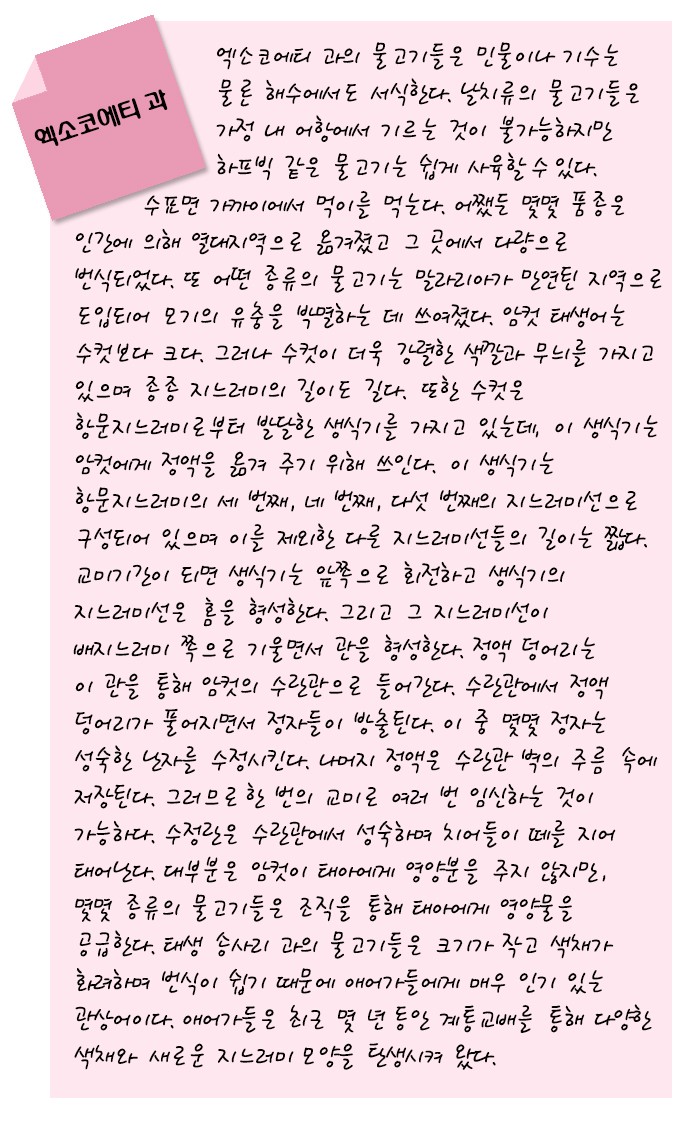 엑소코에티 과
엑소코에티 과의 물고기들은 민물이나 기수는
물론 해수에서도 서식한다. 날치류의 물고기들은
가정 내 어항에서 기르는 것이 불가능하지만
하프빅 같은 물고기는 쉽게 사육할 수 있다.
수표면 가까이에서 먹이를 먹는다. 어쨌든 몇몇 품종은
인간에 의해 열대지역으로 옮겨졌고 그 곳에서 다량으로
번식되었다. 또 어떤 종류의 물고기는 말라리아가 만연된 지역으로
도입되어 모기의 유충을 박멸하는 데 쓰여졌다. 암컷 태생어는
수컷보다 크다. 그러나 수컷이 더욱 강렬한 색깔과 무늬를 가지고
있으며 종종 지느러미의 길이도 길다. 또한 수컷은
항문지느러미로부터 발달한 생식기를 가지고 있는데, 이 생식기는
암컷에게 정액을 옮겨 주기 위해 쓰인다. 이 생식기는
항문지느러미의 세 번째, 네 번째, 다섯 번째의 지느러미선으로
구성되어 있으며 이를 제외한 다른 지느러미선들의 길이는 짧다.
교미기간이 되면 생식기는 앞쪽으로 회전하고 생식기의
지느러미선은 홈을 형성한다. 그리고 그 지느러미선이
배지느러미 쪽으로 기울면서 관을 형성한다. 정액 덩어리는
이 관을 통해 암컷의 수란관으로 들어간다. 수란관에서 정액
덩어리가 풀어지면서 정자들이 방출된다. 이 중 몇몇 정자는
성숙한 난자를 수정시킨다. 나머지 정액은 수란관 벽의 주름 속에
저장된다. 그러므로 한 번의 교미로 여러 번 임신하는 것이
가능하다. 수정란은 수란관에서 성숙하며 치어들이 떼를 지어
태어난다. 대부분은 암컷이 태아에게 영양분을 주지 않지만,
몇몇 종류의 물고기들은 조직을 통해 태아에게 영양물을
공급한다. 태생 송사리 과의 물고기들은 크기가 작고 색채가
화려하며 번식이 쉽기 때문에 애어가들에게 매우 인기 있는
관상어이다. 애어가들은 최근 몇 년 동안 계통교배를 통해 다양한
색채와 새로운 지느러미 모양을 탄생시켜 왔다.